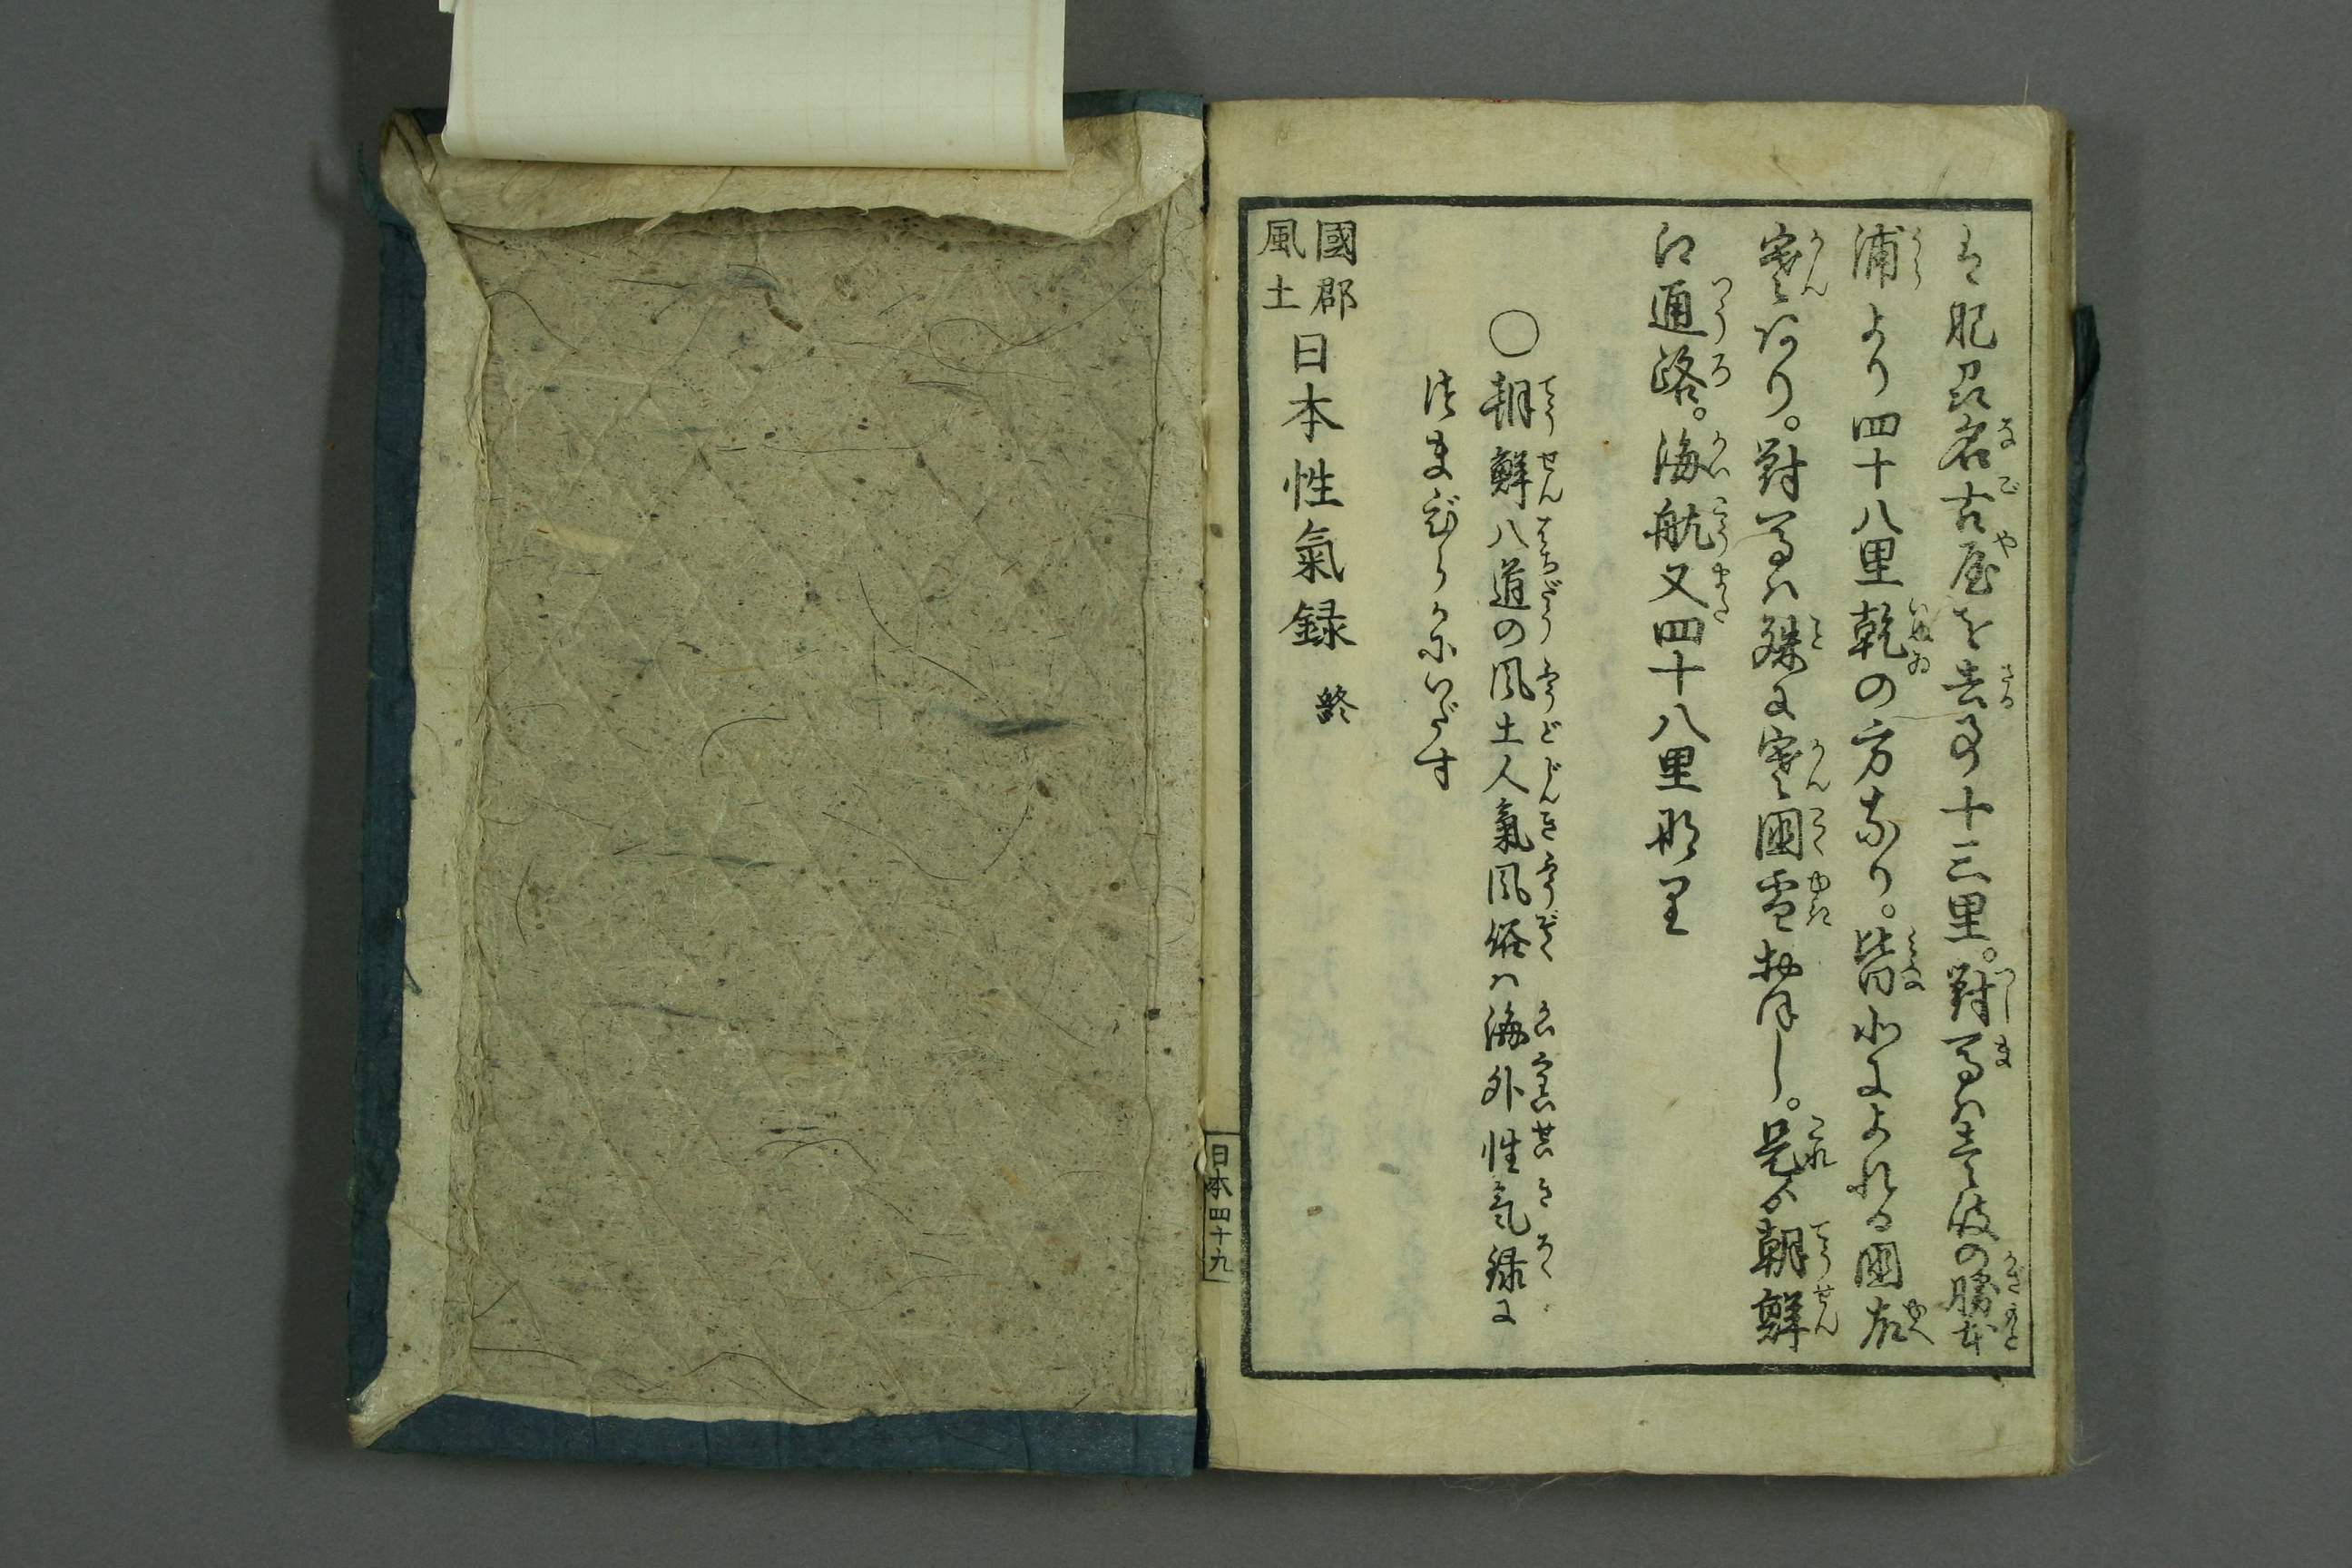 は肥前名古屋を去る事十三里。對馬ハ壱岐の勝本
浦より四十八里乾の方なり。皆北によれる國故
寒気あり。對馬ハ殊に寒國雪なし。是より朝鮮
江通路。海航又四十八里那里
○朝鮮八道の風土人氣風俗ハ海外性氣録に
つまびらかにいだす
國郡
風土
日本性氣録 終
日本 四十九